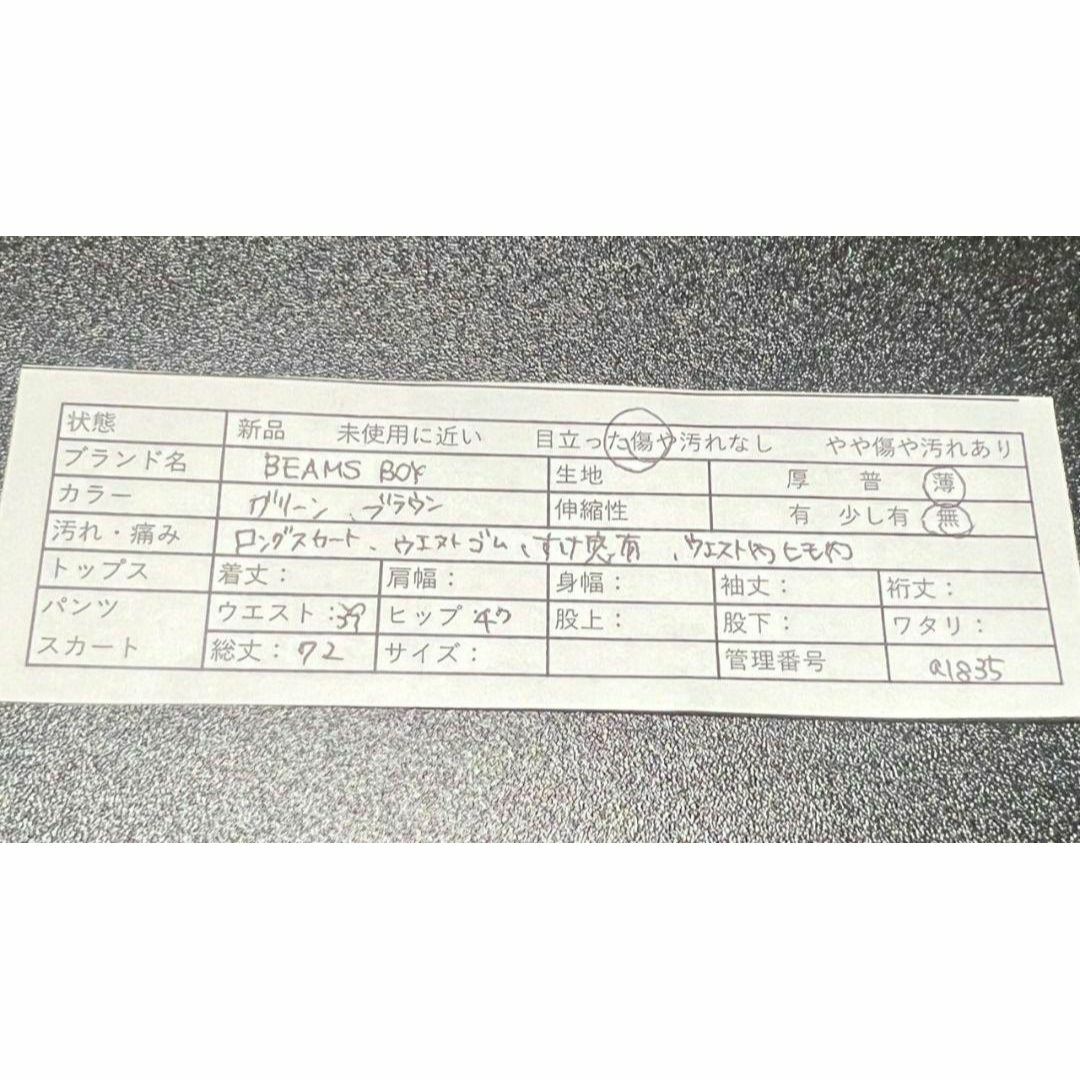 状態 新品 未使用に近い 目立った傷や汚れなし やや傷や汚れあり
ブランド名 BEAMS BOY 生地 厚 普 薄
カラー グリーン、ブラウン 伸縮性 有 少し有 無
汚れ・痛み ロングスカート、ウエストゴム、すけ感有、ウエスト内ヒモ内
トップス 着丈: 肩幅: 身幅: 袖丈: 裄丈:
パンツ ウエスト:39 ヒップ:47 股上: 股下: ワタリ:
スカート 総丈:72 サイズ: 管理番号 a1835